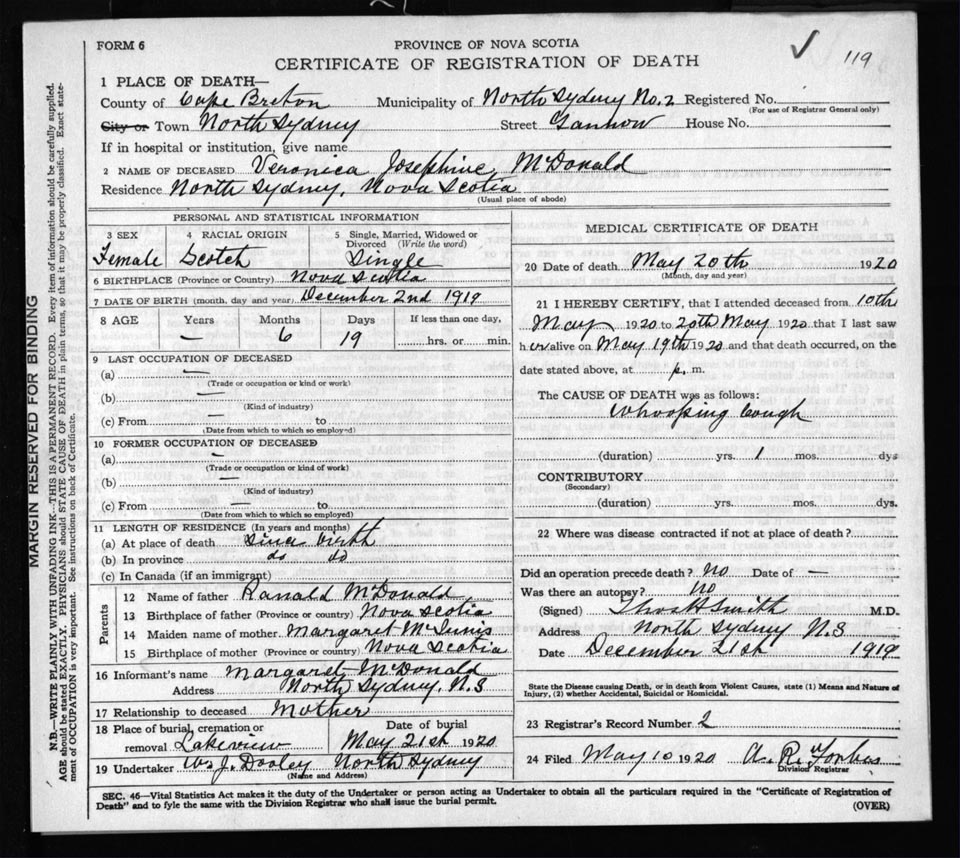 FORM 6
PROVINCE OF NOVA SCOTIA
119
CERTIFICATE OF REGISTRATION OF DEATH
1 PLACE OF DEATH—
County of Cape Breton Municipality of North Sydney No. 2 Registered No.
(For use of Registrar General only)
City or Town North Sydney Street House No.
If in hospital or institution, give name
2 NAME OF DECEASED Veronica Josephine McDonald
Residence North Sydney, Nova Scotia
(Usual place of abode)
PERSONAL AND STATISTICAL INFORMATION
3 SEX 4 RACIAL ORIGIN 5 Single, Married, Widowed or Divorced (Write the word)
Female Scotch Single
6 BIRTHPLACE (Province or Country) Nova Scotia
7 DATE OF BIRTH (month, day and year) December 2nd 1919
8 AGE Years Months Days If less than one day,
— 6 19 hrs. or min.
9 LAST OCCUPATION OF DECEASED
(a) —
(Trade or occupation or kind or work)
(b) —
(Kind of industry)
(c) From — to
(Date from which to which so employed)
10 FORMER OCCUPATION OF DECEASED
(a) —
(Trade or occupation or kind of work)
(b) —
(Kind of industry)
(c) From — to
(Date from which to which so employed)
11 LENGTH OF RESIDENCE (In years and months)
(a) At place of death Since birth
(b) In province do do
(c) In Canada (if an immigrant)
Parents
12 Name of father Ranald McDonald
13 Birthplace of father (Province or country) Nova Scotia
14 Maiden name of mother Margaret McInnis
15 Birthplace of mother (Province or country) Nova Scotia
16 Informant's name Margaret McDonald
Address North Sydney, N.S
17 Relationship to deceased Mother
18 Place of burial, cremation or Date of burial
removal Lakeview May 21st 1920
19 Undertaker J. Dooley North Sydney
(Name and Address)
MEDICAL CERTIFICATE OF DEATH
20 Date of death May 20th 1920
(Month, day and year)
21 I HEREBY CERTIFY, that I attended deceased from 10th
May 1920 to 20th May 1920 that I last saw
her alive on May 19th 1920 and that death occurred, on the
date stated above, at p. m.
The CAUSE OF DEATH was as follows:
Whooping Cough
(duration) yrs. 1 mos. dys
CONTRIBUTORY
(Secondary)
(duration) yrs. mos. dys.
22 Where was disease contracted if not at place of death?
Did an operation precede death? No Date of —
Was there an autopsy? No
(Signed) Thos H Smith M.D.
Address North Sydney N.S
Date December 21st 1919
State the Disease causing Death, or in death from Violent Causes, state (1) Means and Nature of
Injury, (2) whether Accidental, Suicidal or Homicidal.
23 Registrar's Record Number 2
24 Filed May 10 1920 A. R. Forbes
Division Registrar
SEC. 46—Vital Statistics Act makes it the duty of the Undertaker or person acting as Undertaker to obtain all the particulars required in the "Certificate of Registration of
Death" and to fyle the same with the Division Registrar who shall issue the burial permit.
(OVER)
MARGIN RESERVED FOR BINDING
N.B.—WRITE PLAINLY WITH UNFADING INK—THIS IS A PERMANENT RECORD. Every item of information should be carefully supplied.
AGE should be stated EXACTLY. PHYSICIANS should STATE CAUSE OF DEATH in plain terms, so that it may be properly classified. Exact state-
ment of OCCUPATION is very important. See instructions on back of Certificate.